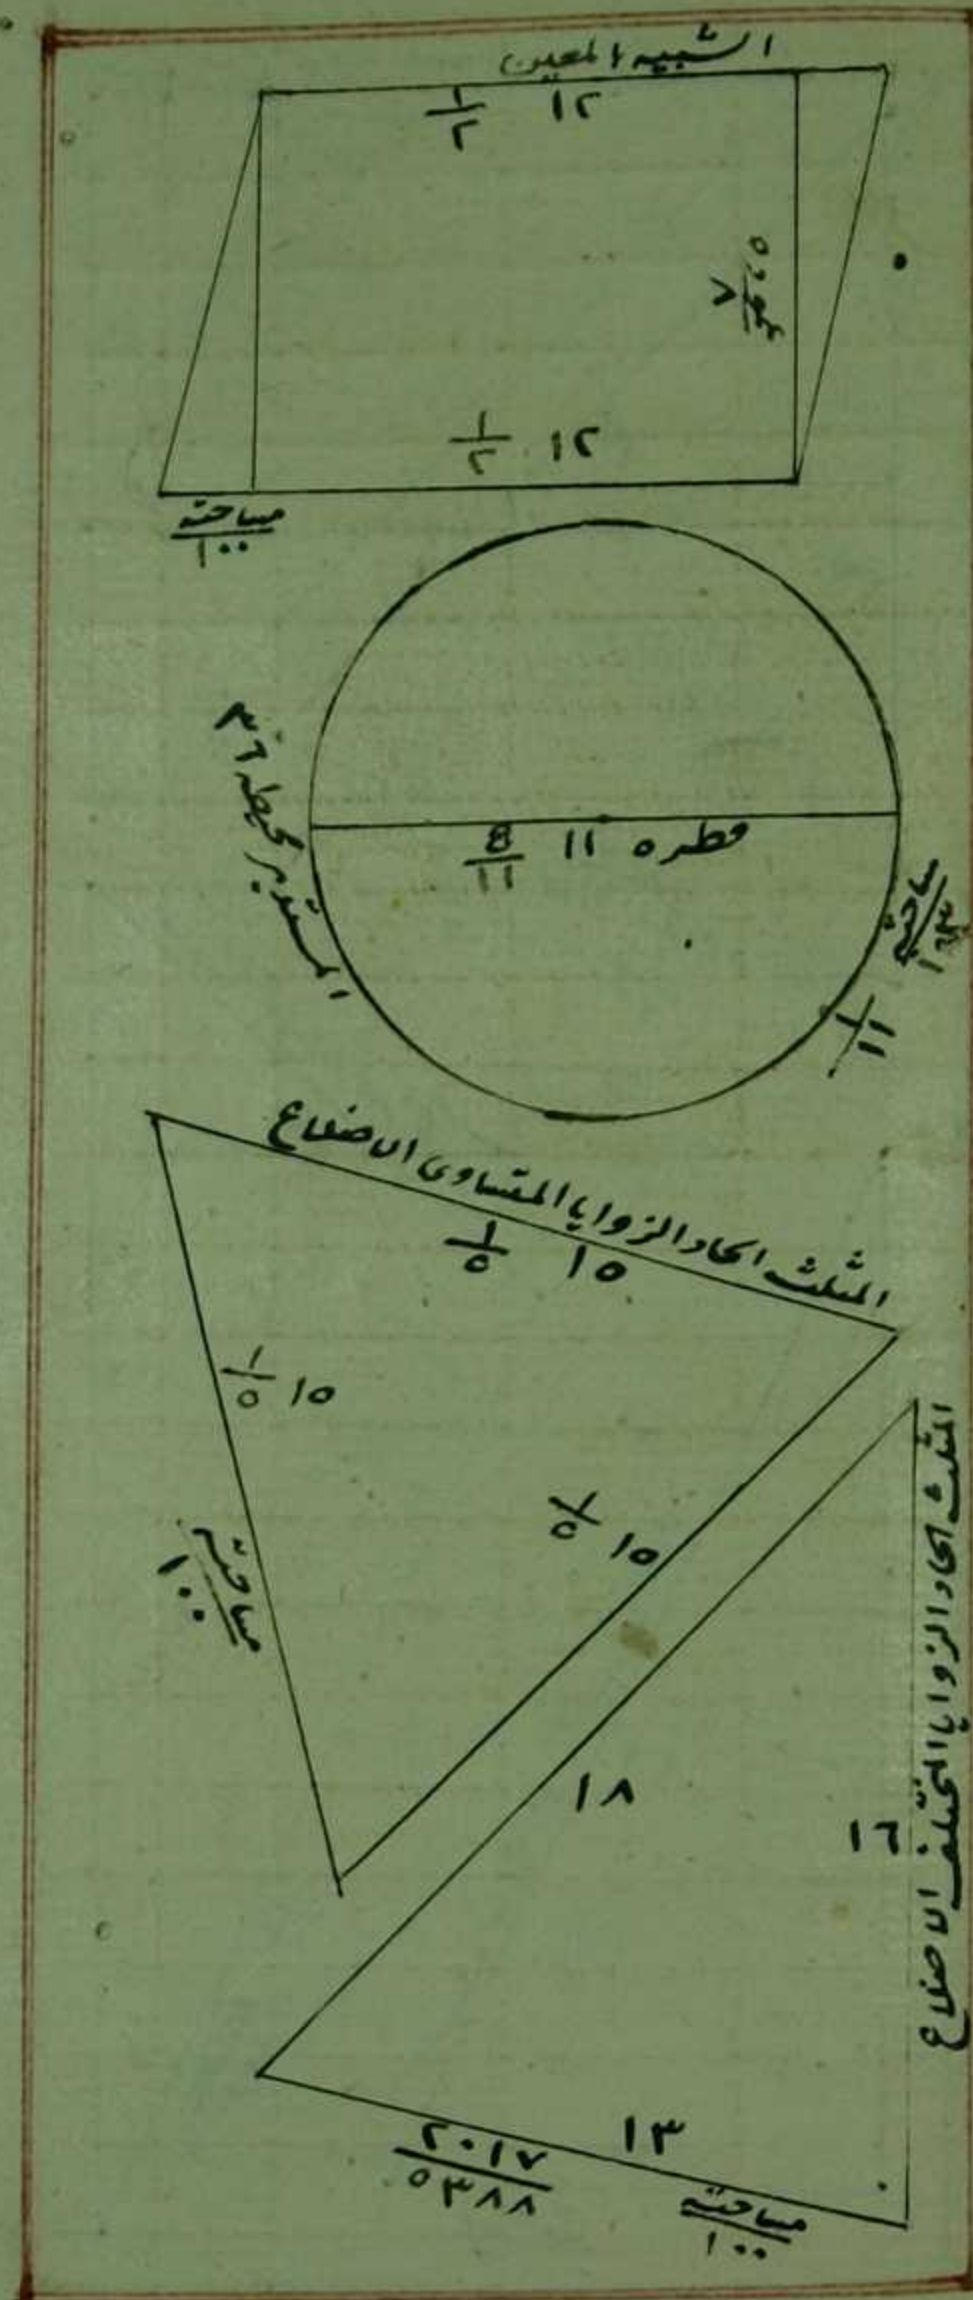 الشبيه المعين
١٢ ١/٢
عموده
٨
١٢ ١/٢
مساحته
١٠٠
المستدير محيطه ٣٦
قطره ١١ ٥/١١
مساحته
١/١١
المثلث الحاد الزوايا المتساوى الاضلاع
١٥ ١/٥
١٥ ١/٥
١٥ ١/٥
مساحته
١٠٠
المثلث الحاد الزوايا المختلف الاضلاع
١٨
١٦
١٣ ٢٠١٧/٥٣٨٨
مساحته
١٠٠